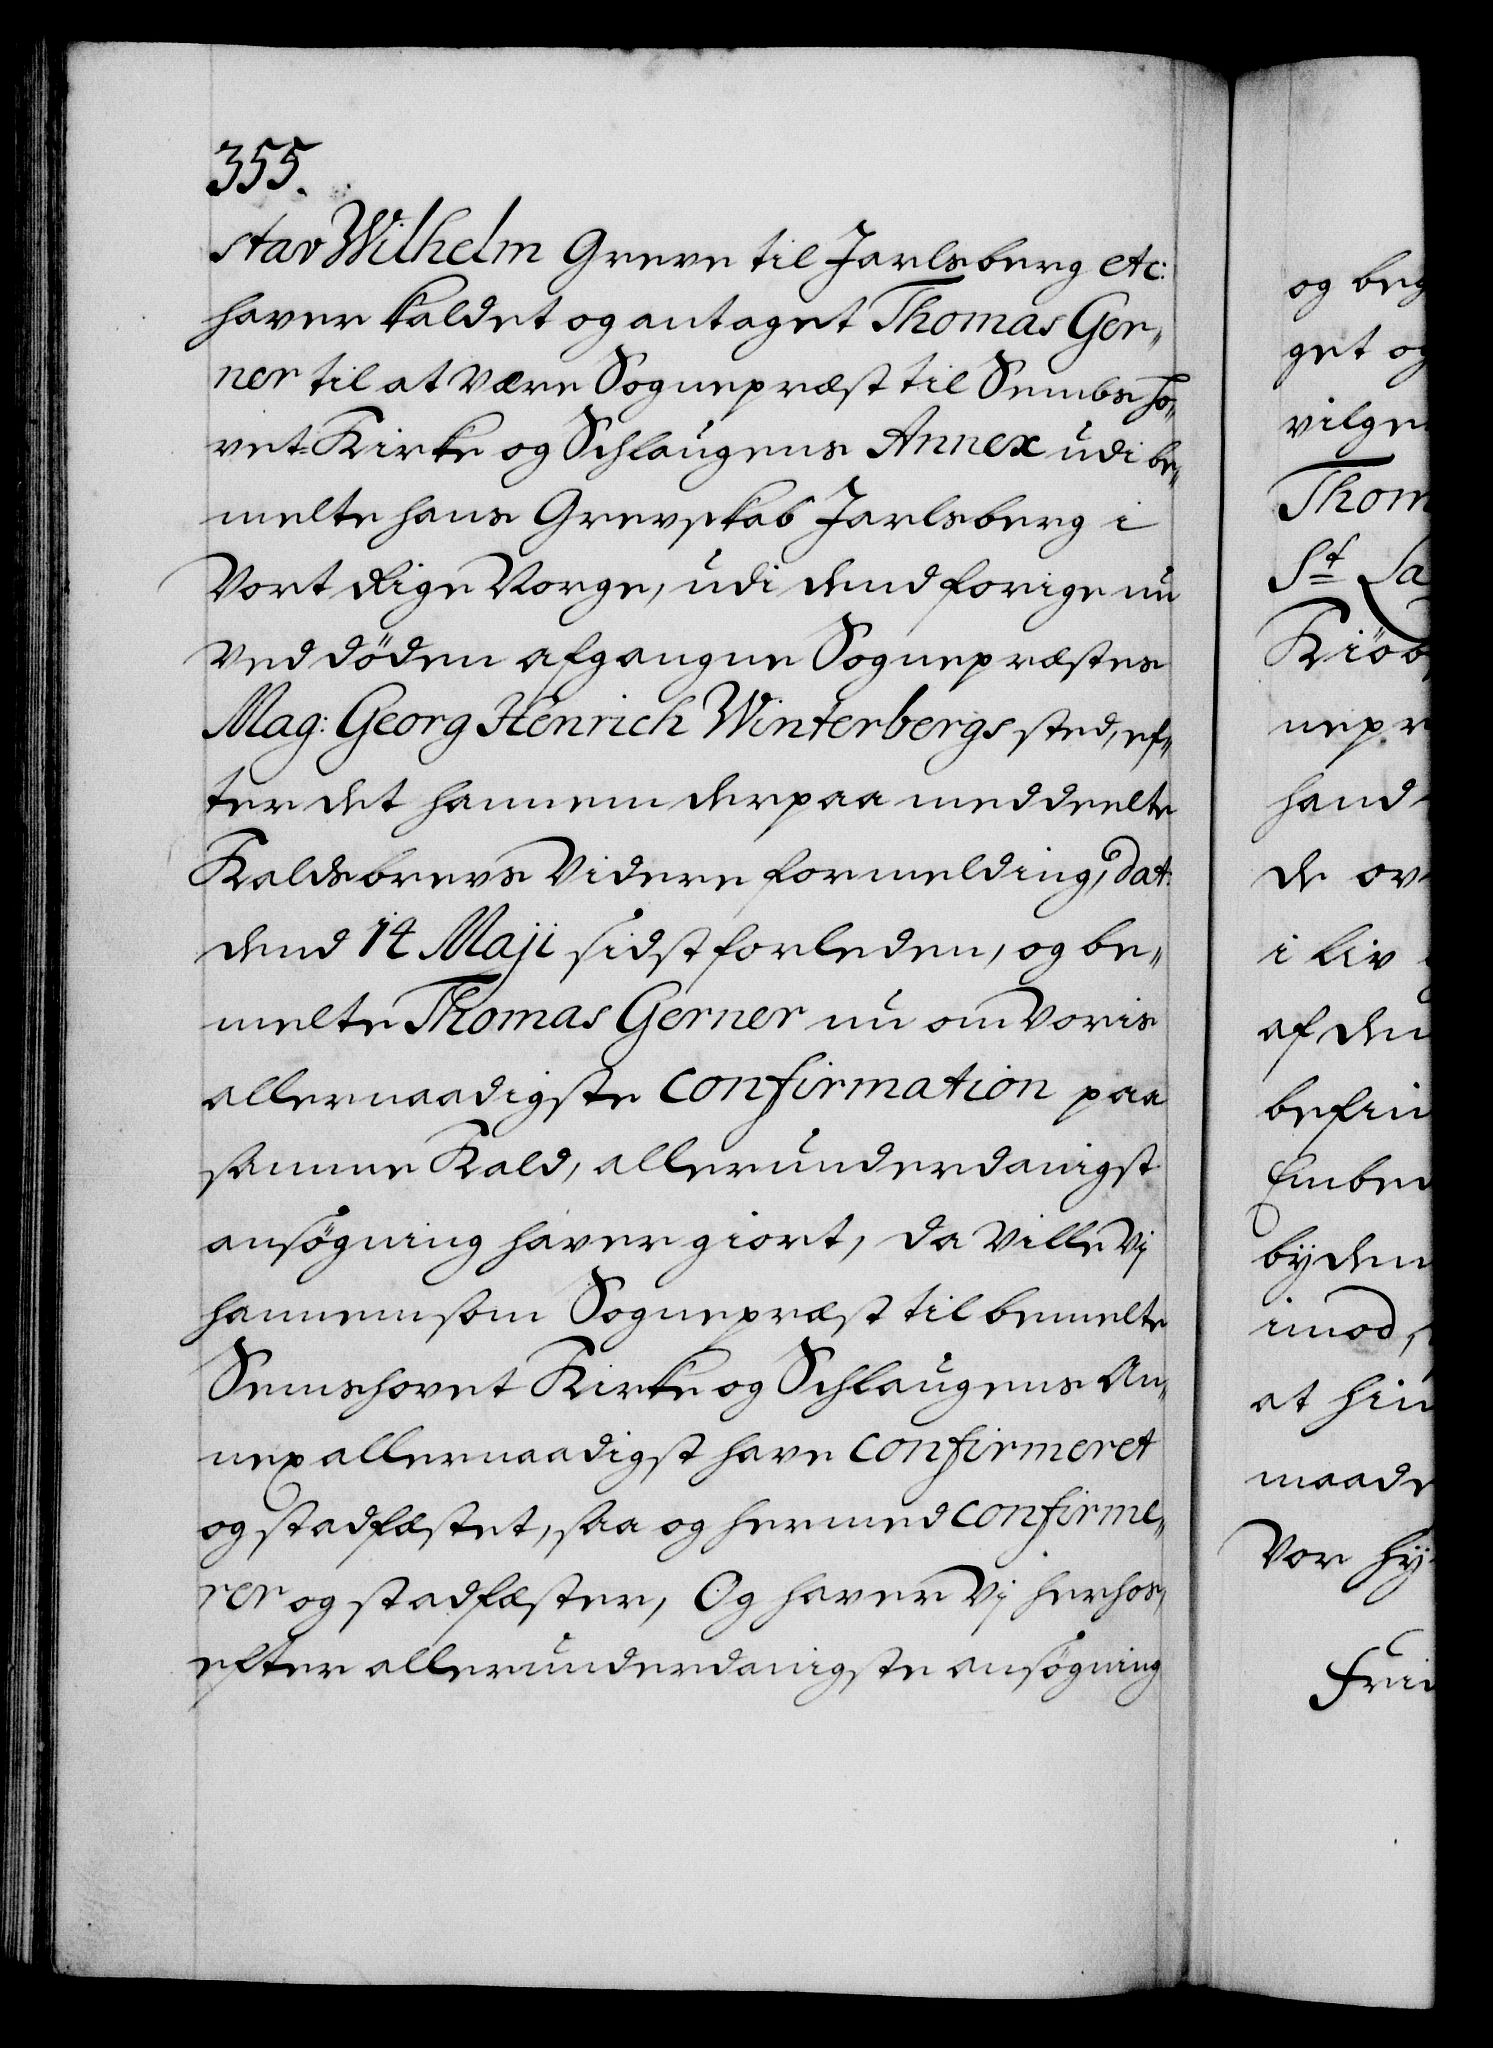 355.
stav Wilhelm Greve til Jarlsberg etc:
haver kaldet og antaget Thomas Ger„
ner til at være Sognepræst til Sembs Ho„
vet-Kirke og Schlaugens Annex udi be„
melte hans Grevskab Jarlsberg i
Vort Rige Norge, udi dend forige nu
ved döden afgangne Sognepræstes
Mag: Georg Henrich Winterbergs sted, ef„
ter det hannem derpaa meddeelte
Kaldsbrevs videre formelding, dat:
dend 14 Maji sidstforleden, og be„
melte Thomas Gerner nu om Voris
allernaadigste Confirmation paa
samme Kald, allerunderdanigst
ansögning haver giort, da ville Vj
hannem som Sognepræst til bemelte
Semshovet Kirke og Schlaugens An„
nex allernaadigst have Confirmeret
og stadfæstet, saa og hermed Confirme„
rer og stadfæster, Og haver Vj herhos,
efter allerunderdanigste ansögning
og beg
get og
vilge
Thom
St La
Kiöb
nepr
hand
de ov
i liv
af den
befin
Embed
byden
imod,
at hin
maade
Vor hy
Frid